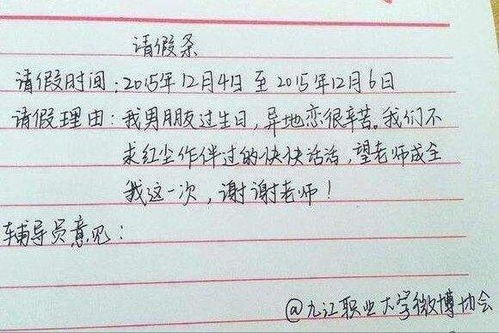 请假条
请假时间：2015年12月4日 至 2015年12月6日
请假理由：我男朋友过生日，异地恋很辛苦。我们不
求红尘作伴过的快快活活，望老师成全
我这一次，谢谢老师！
辅导员意见：
@九江职业大学微博协会